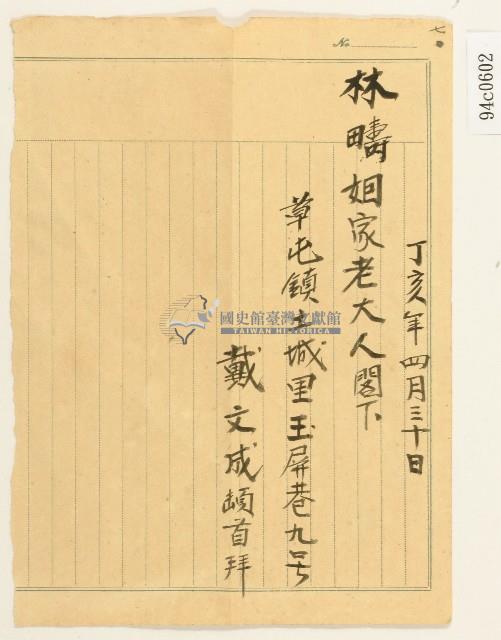 丁亥年四月三十日
林疇姻家老大人閣下
草屯鎮土城里玉屏巷九号
戴文成頓首拜
七
No
94c0602
國史館臺灣文獻館
TAIWAN HISTORICA